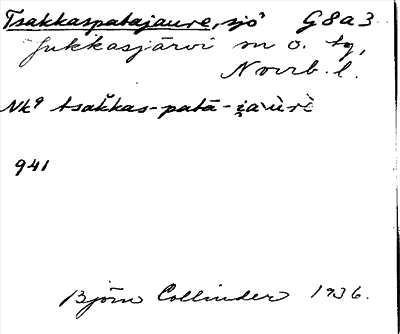 Tsakkaspatajaure, sjö G8a3
Jukkasjärvi sn o. tg,
Norrb. l.
Nk9 tsakkas-patā-jaurè
941
Björn Collinder 1936.